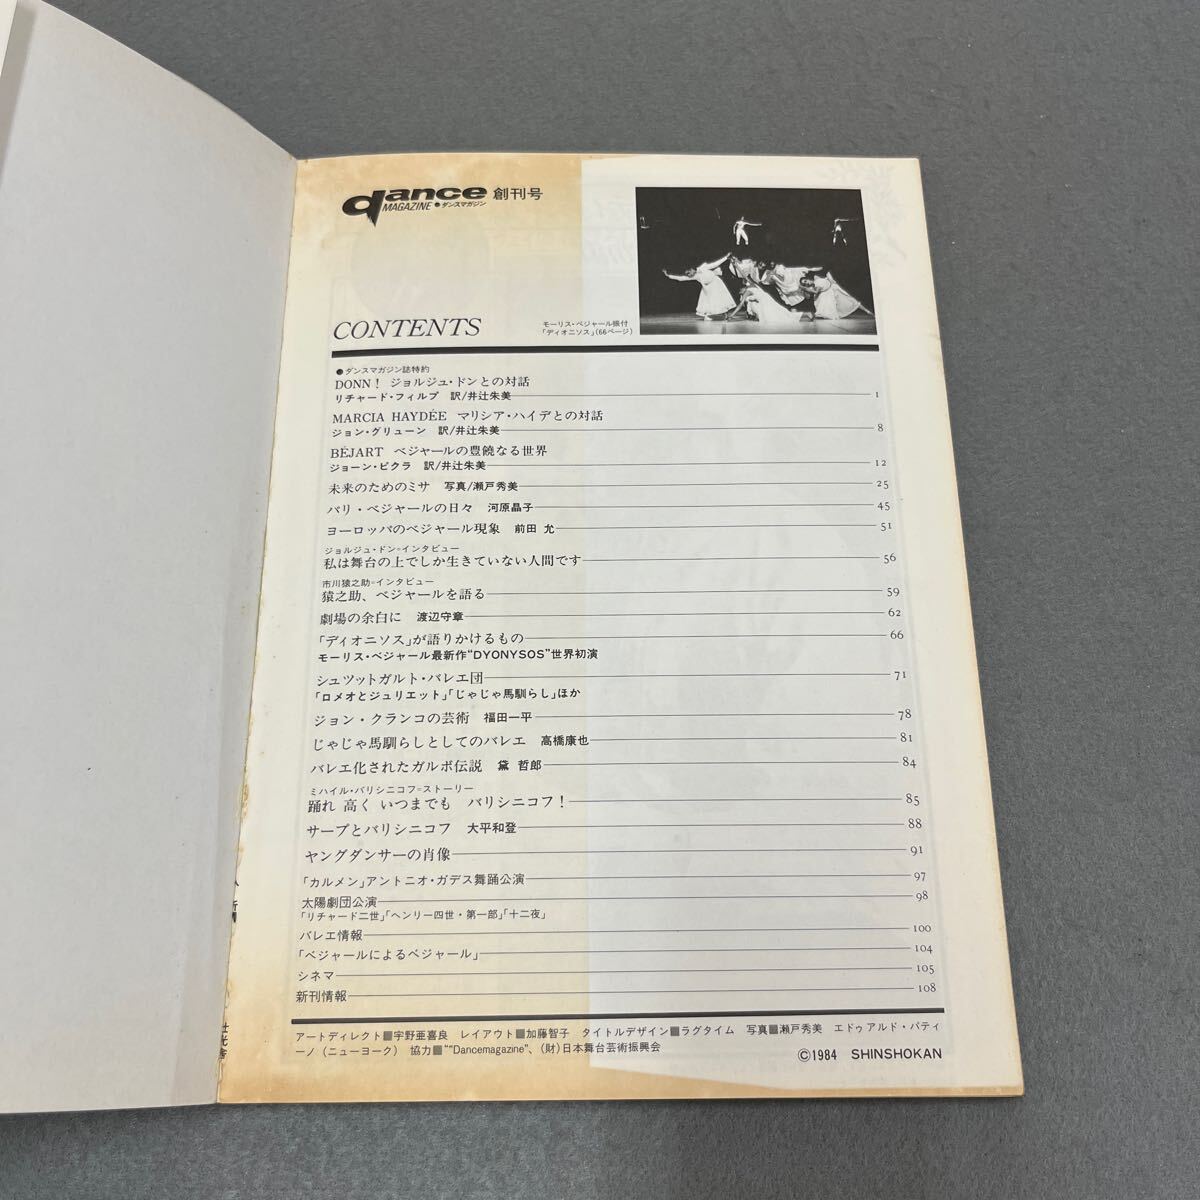 dance 創刊号
MAGAZINE●ダンスマガジン
CONTENTS
モーリス・ベジャール振付
「ディオニソス」(66ページ)
●ダンスマガジン誌特約
DONN！ ジョルジュ・ドンとの対話
リチャード・フィルプ 訳/井辻朱美 1
MARCIA HAYDÉE マリシア・ハイデとの対話
ジョン・グリューン 訳/井辻朱美 8
BÉJART ベジャールの豊饒なる世界
ジョーン・ピクラ 訳/井辻朱美 12
未来のためのミサ 写真/瀬戸秀美 25
パリ・ベジャールの日々 河原晶子 45
ヨーロッパのベジャール現象 前田 允 51
ジョルジュ・ドン=インタビュー
私は舞台の上でしか生きていない人間です 56
市川猿之助=インタビュー
猿之助、ベジャールを語る 59
劇場の余白に 渡辺守章 62
「ディオニソス」が語りかけるもの 66
モーリス・ベジャール最新作“DYONYSOS”世界初演
シュツットガルト・バレエ団 71
「ロメオとジュリエット」「じゃじゃ馬馴らし」ほか
ジョン・クランコの芸術 福田一平 78
じゃじゃ馬馴らしとしてのバレエ 高橋康也 81
バレエ化されたガルボ伝説 黛 哲郎 84
ミハイル・バリシニコフ=ストーリー
踊れ 高く いつまでも バリシニコフ！ 85
サープとバリシニコフ 大平和登 88
ヤングダンサーの肖像 91
「カルメン」アントニオ・ガデス舞踊公演 97
太陽劇団公演 98
「リチャード二世」「ヘンリー四世・第一部」「十二夜」
バレエ情報 100
「ベジャールによるベジャール」 104
シネマ 105
新刊情報 108
アートディレクト■宇野亜喜良 レイアウト■加藤智子 タイトルデザイン■ラグタイム 写真■瀬戸秀美 エドゥアルド・パティ
ーノ（ニューヨーク） 協力■“"Dancemagazine"、(財)日本舞台芸術振興会
©1984 SHINSHOKAN